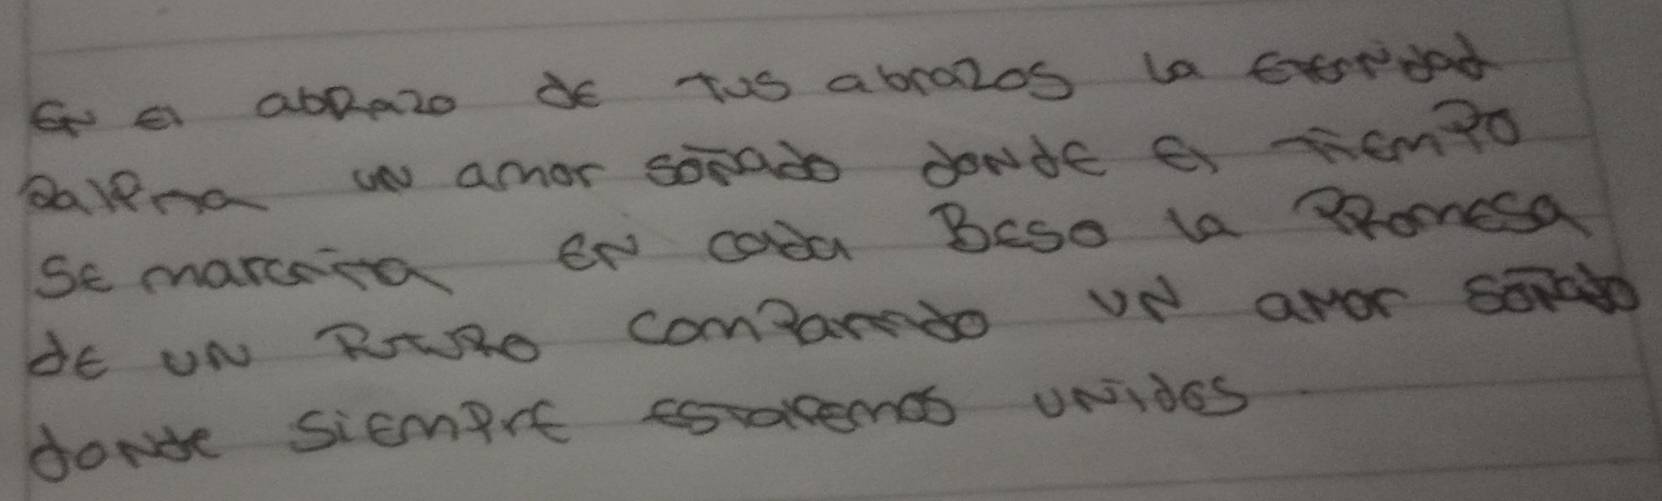 En el abrazo de tus abrazos la eternidad
palpita un amor soñado donde el tiempo
se marchita en cada Beso la Promesa
de un futuro compartido un amor soñado
donde siempre estaremos unidos